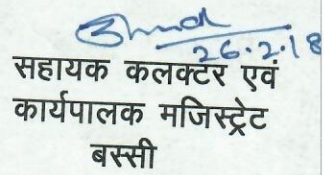 26.2.18
सहायक कलक्टर एवं
कार्यपालक मजिस्ट्रेट
बस्सी